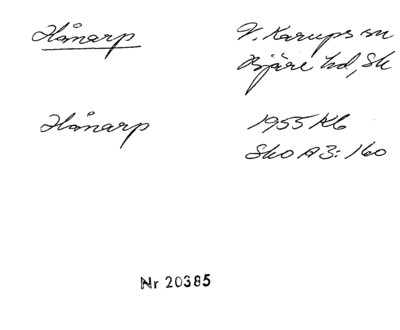 Hånarp
V. Karups sn
Bjäre hd, Sk
Hånarp
1955 Kb
Sko A 3: 160
Nr 20385